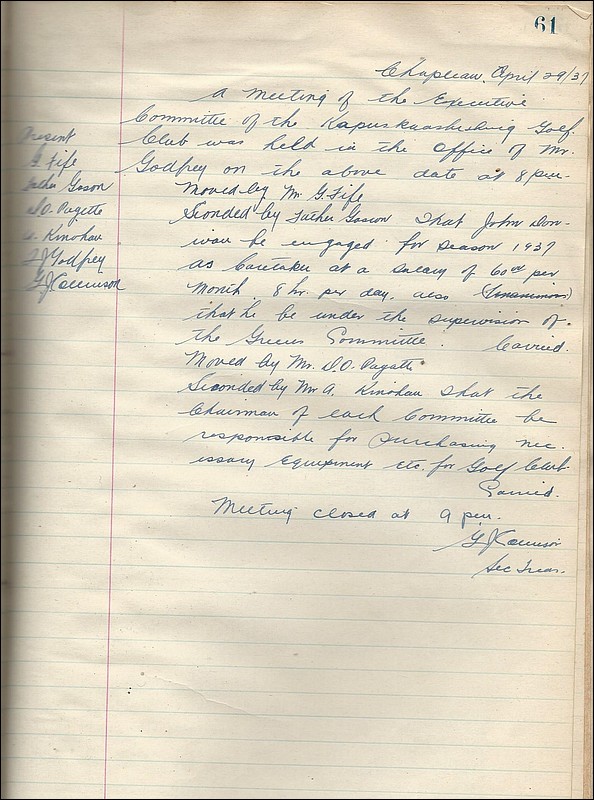 61
Chapleau, April 29/37
A meeting of the Executive
Committee of the Kapuskuasheiwig Golf
Club was held in the Office of Mr.
Godfrey on the above date at 8 pm.
Present
G. Fife
Father Gascon
D.O. Payette
A. Kinahan
Godfrey
Moved by Mr G. Fife
Seconded by Father Gascon that John Don-
van be engaged for season 1937
as Caretaker at a salary of 60.00 per
Month 8 hr. per day, also (Unanimous)
that he be under the supervision of
the Greens Committee. Carried.
Moved by Mr. D.O. Payette
Seconded by Mr A. Kinahan that the
Chairman of each Committee be
responsible for purchasing nec.
issary Equipment etc. for Golf Club
Carried.
Meeting closed at 9 pm.
Sec Treas.